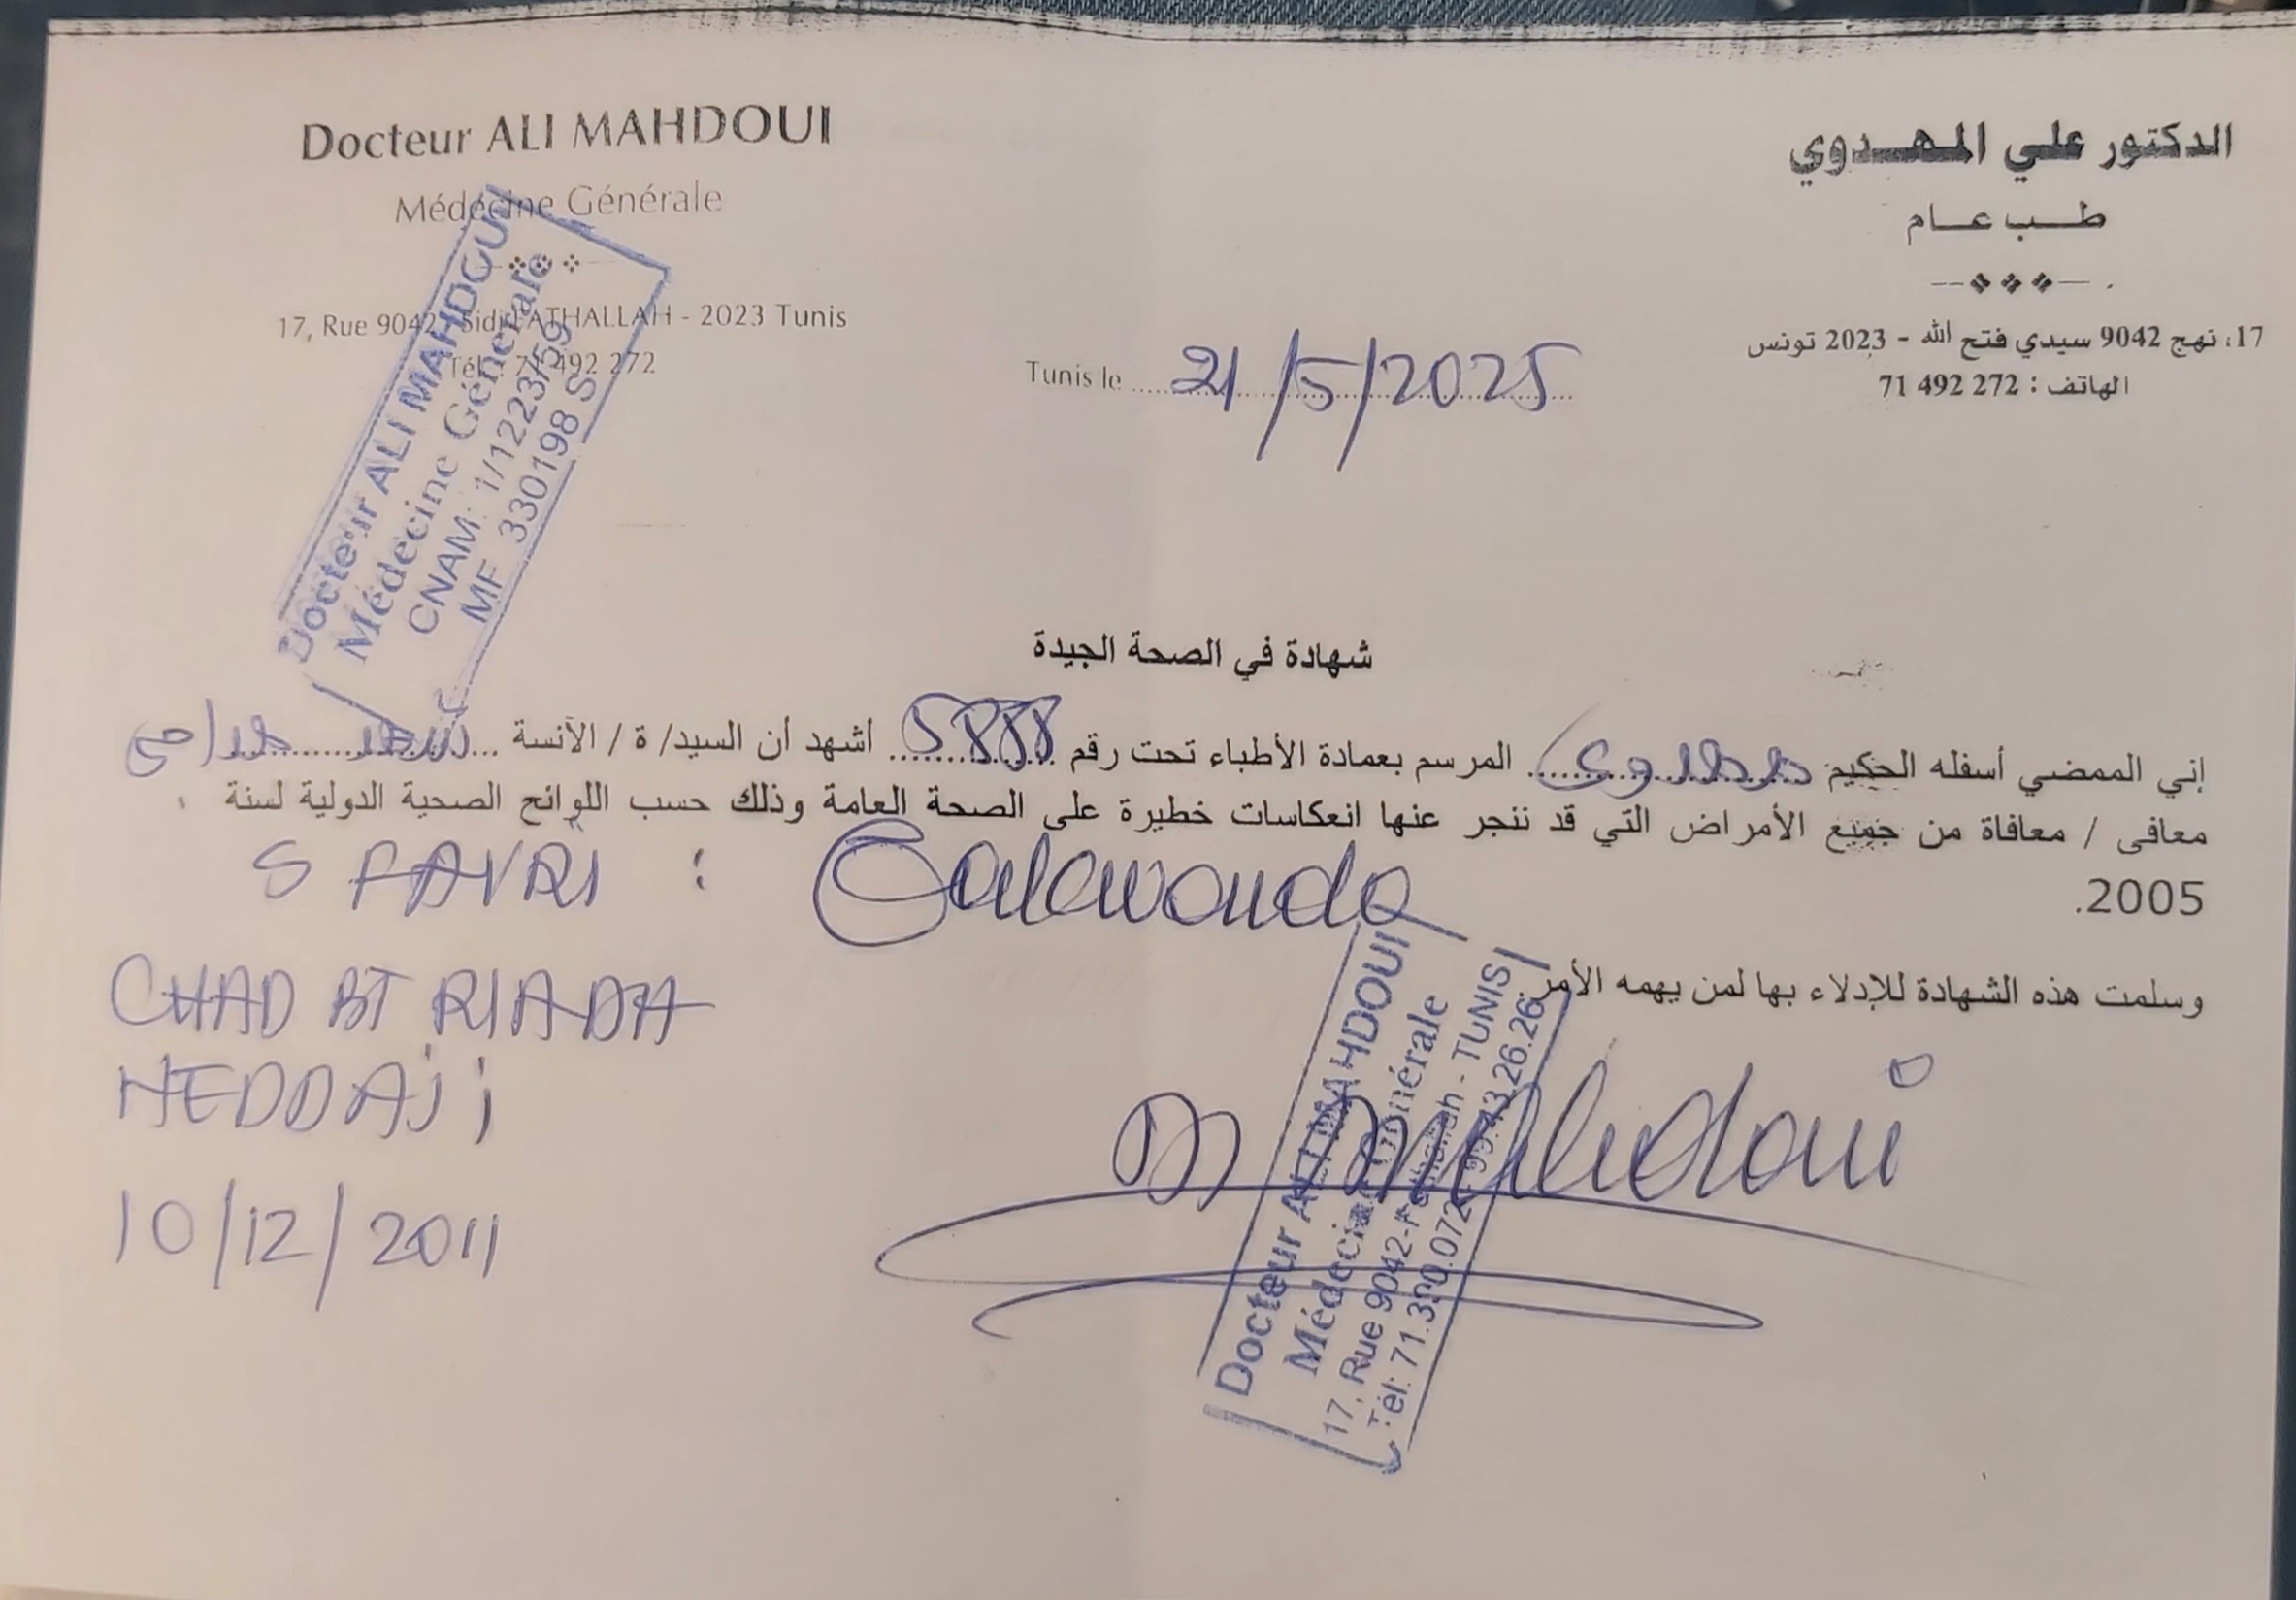 Docteur ALI MAHDOUI
Médecine Générale
17, Rue 9042 Sidi FATHALLAH - 2023 Tunis
Tél.: 71 492 272
الدكتور علي المهدوي
طب عام
17، نهج 9042 سيدي فتح الله - 2023 تونس
الهاتف : 272 492 71
Tunis le 21/5/2025
Docteur ALI MAHDOUI
Médecine Générale
CNAM: 1/1223/59
MF 330198 S
شهادة في الصحة الجيدة
إني الممضي أسفله الحكيم المرسم بعمادة الأطباء تحت رقم أشهد أن السيد/ ة / الآنسة
معافى / معافاة من جميع الأمراض التي قد تنجر عنها انعكاسات خطيرة على الصحة العامة وذلك حسب اللوائح الصحية الدولية لسنة
2005.
وسلمت هذه الشهادة للإدلاء بها لمن يهمه الأمر.
CHAD BT RIADH
HEDDAJi
10/12/2011
Mahdoui
Docteur ALI MAHDOUI
Médecine Générale
17, Rue 9042-Fathallah - TUNIS